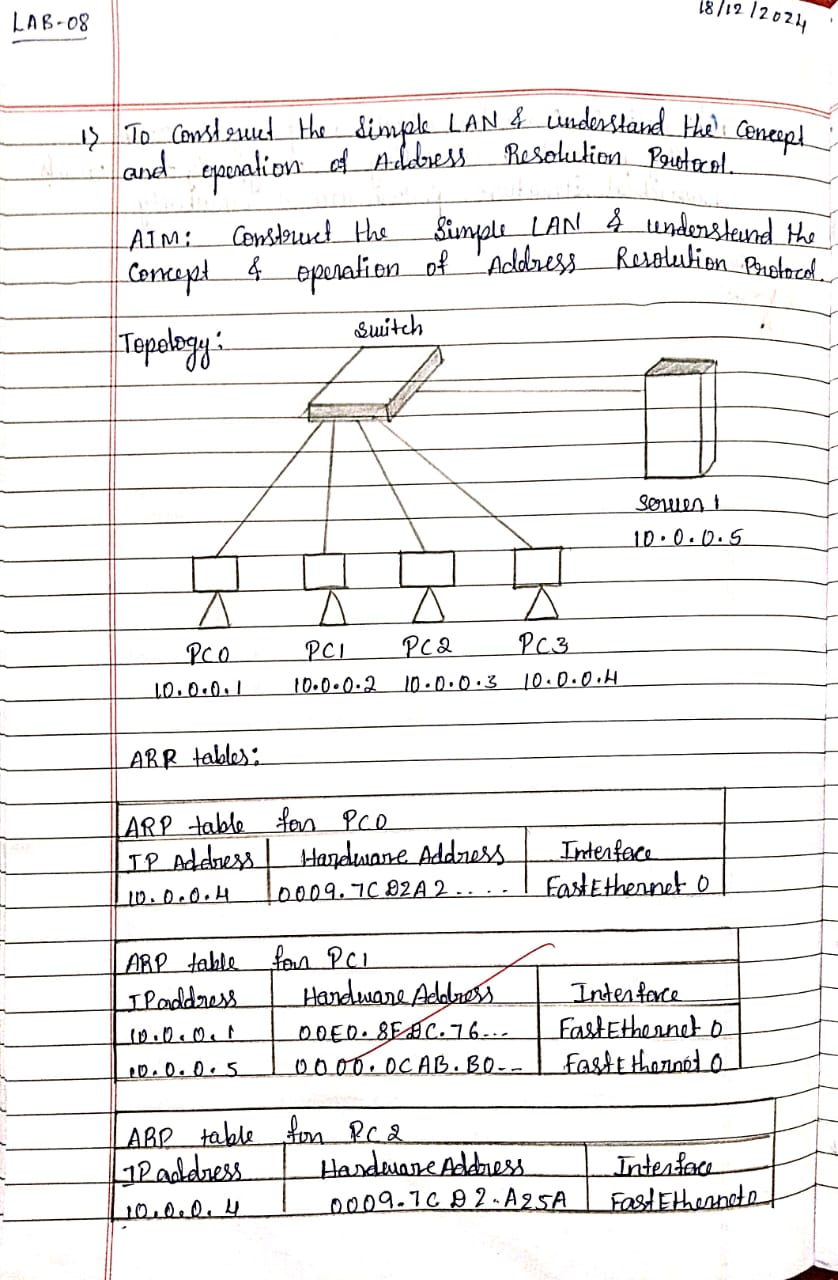 LAB-08
18/12/2024
1) To Construct the Simple LAN & understand the Concept
and operation of Address Resolution Protocol.
AIM: Construct the Simple LAN & understand the
Concept & operation of Address Resolution Protocol.
Topology:
Switch
Server 1
10.0.0.5
PC0 PC1 PC2 PC3
10.0.0.1 10.0.0.2 10.0.0.3 10.0.0.4
ARR tables:
ARP table for PC0
IP Address Hardware Address Interface
10.0.0.4 0009.7CD2A2.... FastEthernet 0
ARP table for PC1
IP address Hardware Address Interface
10.0.0.1 00E0.8F8C.76... FastEthernet 0
10.0.0.5 0000.0CAB.B0-- FastEthernet 0
ARP table for PC2
IP address Hardware Address Interface
10.0.0.4 0009.7CD2.A25A FastEthernet0